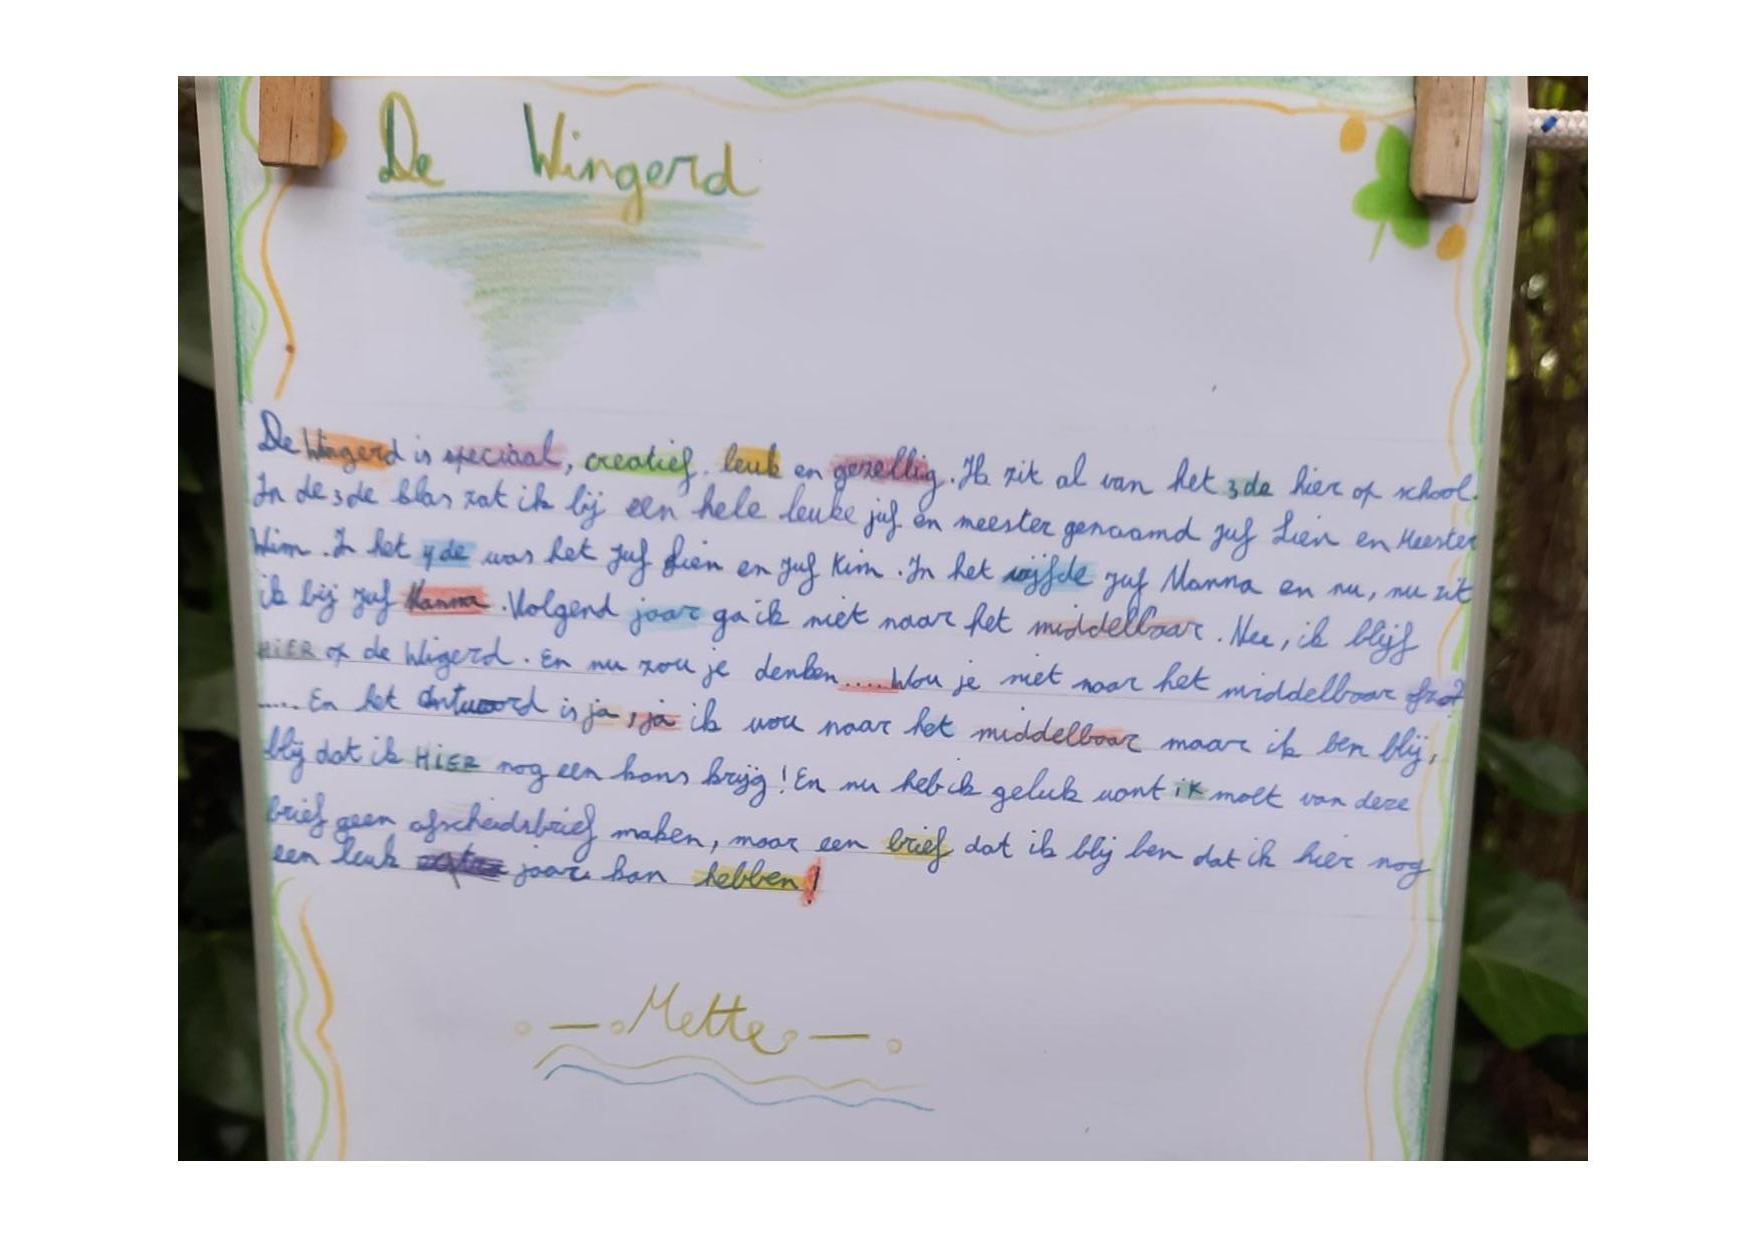 De Wingerd
De Wingerd is speciaal, creatief, leuk en gezellig. Ik zit al van het 3de hier op school.
In de 3de klas zat ik bij een hele leuke juf en meester genaamd juf Lien en Meester
Wim. In het 4de was het juf Lien en juf Kim. In het vijfde juf Hanna en nu, nu zit
ik bij juf Hanna. Volgend jaar ga ik niet naar het middelbaar. Nee, ik blijf
HIER op de Wigerd. En nu zou je denken.....Wou je niet naar het middelbaar ofzo?
.....En het antwoord is ja, ja ik wou naar het middelbaar maar ik ben blij,
blij dat ik HIER nog een kans krijg! En nu heb ik geluk want ik moet van deze
brief geen afscheidsbrief maken, maar een brief dat ik blij ben dat ik hier nog
een leuk jaar kan hebben!
Mette